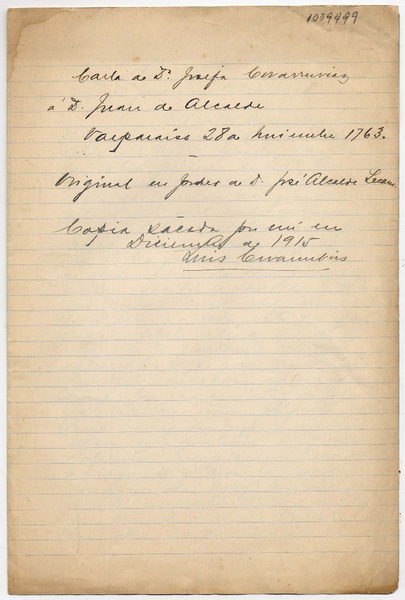 1089499
Carta de Dª Josefa Covarruvias
á D. Juan de Alcalde
Valparaiso 28 de Noviembre 1763.
Original en poder de D. José Alcalde
Copia sacada por mi en
Diciembre de 1915
Luis Covarrubias